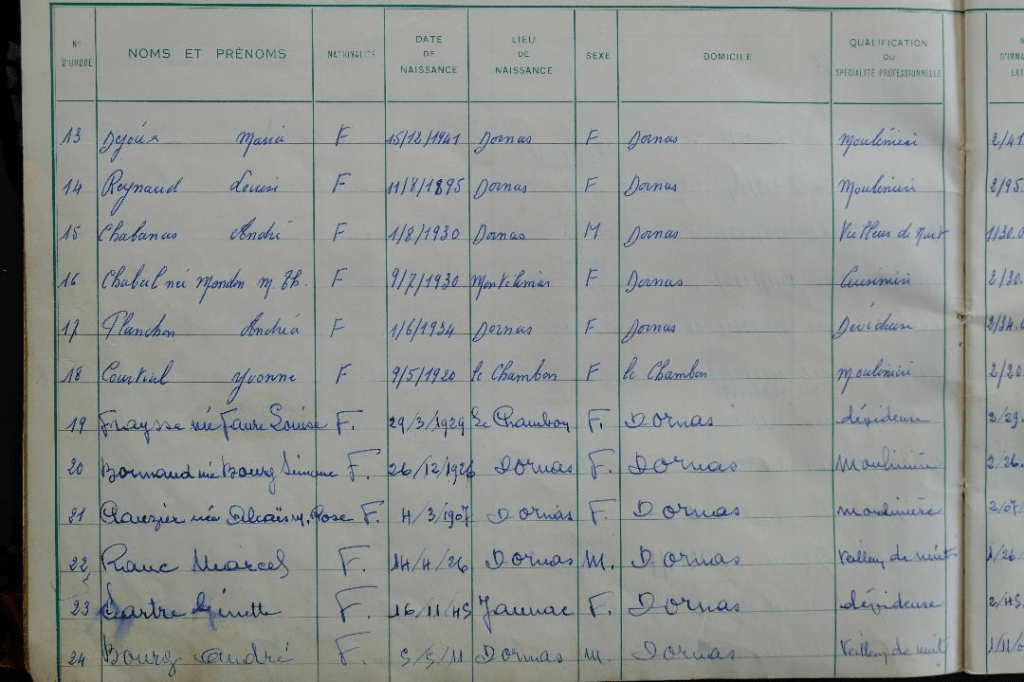 N° D'ORDRE NOMS ET PRÉNOMS NATIONALITÉ DATE DE NAISSANCE LIEU DE NAISSANCE SEXE DOMICILE QUALIFICATION OU SPÉCIALITÉ PROFESSIONNELLE
13 Dejoux Maria F 15/12/1941 Dornas F Dornas Moulinière 2/41
14 Reynaud Louise F 11/8/1895 Dornas F Dornas Moulinière 2/95.
15 Chabanas André F 1/8/1930 Dornas M Dornas Veilleur de Nuit 1/30.0
16 Chabal née Mondon M. Th. F 9/7/1930 Montelimar F Dornas 2/30.
17 Planchon Andréa F 1/6/1934 Dornas F Dornas Dévideuse 2/34.0
18 Courtial Yvonne F 9/5/1920 le Chambon F le Chambon Moulinière 2/20
19 Fraysse née Faure Louise F. 29/3/1929 Le Chambon F. Dornas dévideuse 2/29.
20 née Bourg Simone F. 26/12/1926 Dornas F. Dornas Moulinière 2/26.
21 née Rose F. 4/3/1907 Dornas F. Dornas moulinière 2/07/
22 Ranc Marcel F. 14/4/26 Dornas M. Dornas Veilleur de nuit 1/26
23 Sartre Ginette F. 16/11/45 Jaunac F. Dornas dévideuse 2/45
24 Bourg André F. 5/5/11 Dornas M. Dornas Veilleur de nuit 1/11/0